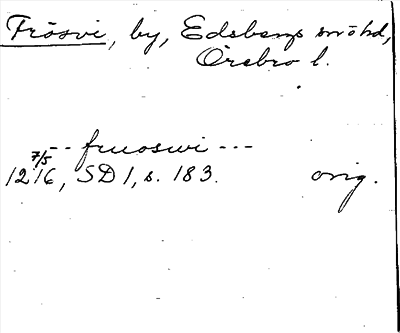 Frösvi, by, Edsbergs sn o hd,
Örebro l.
-- fruoswi ---
12 7/5 16, SD 1, s. 183. orig.